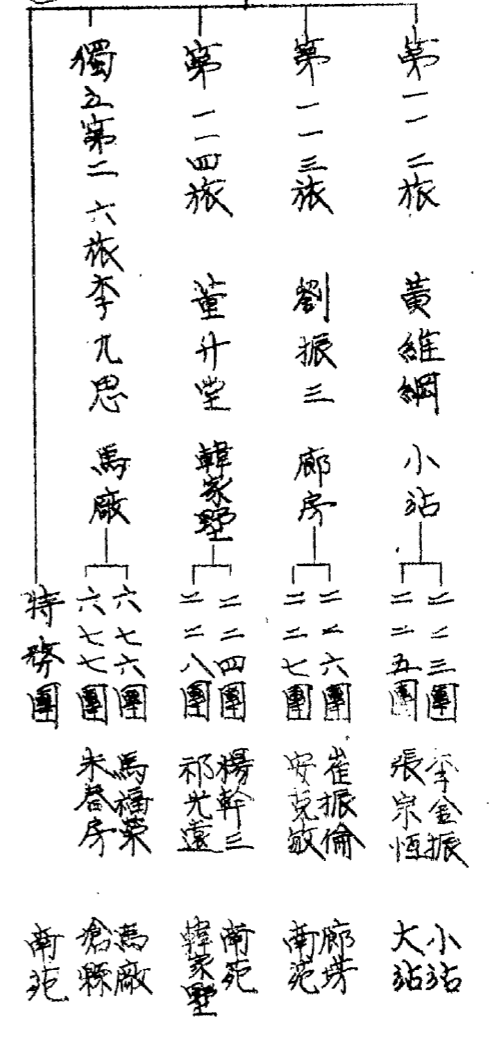 第一一二旅　黃維綱　小站
二二三團　李金振　小站
二二五團　張宗恆　大站
第一一三旅　劉振三　廊房
二二六團　崔振倫　廊坊
二二七團　安克敏　南苑
第一一四旅　董升堂　韓家墅
二二四團　楊幹三　南苑
二二八團　祁光遠　韓家墅
獨立第二六旅　李九思　馬廠
六七六團　馬福榮　馬廠
六七七團　朱春房　滄縣
特務團　南苑